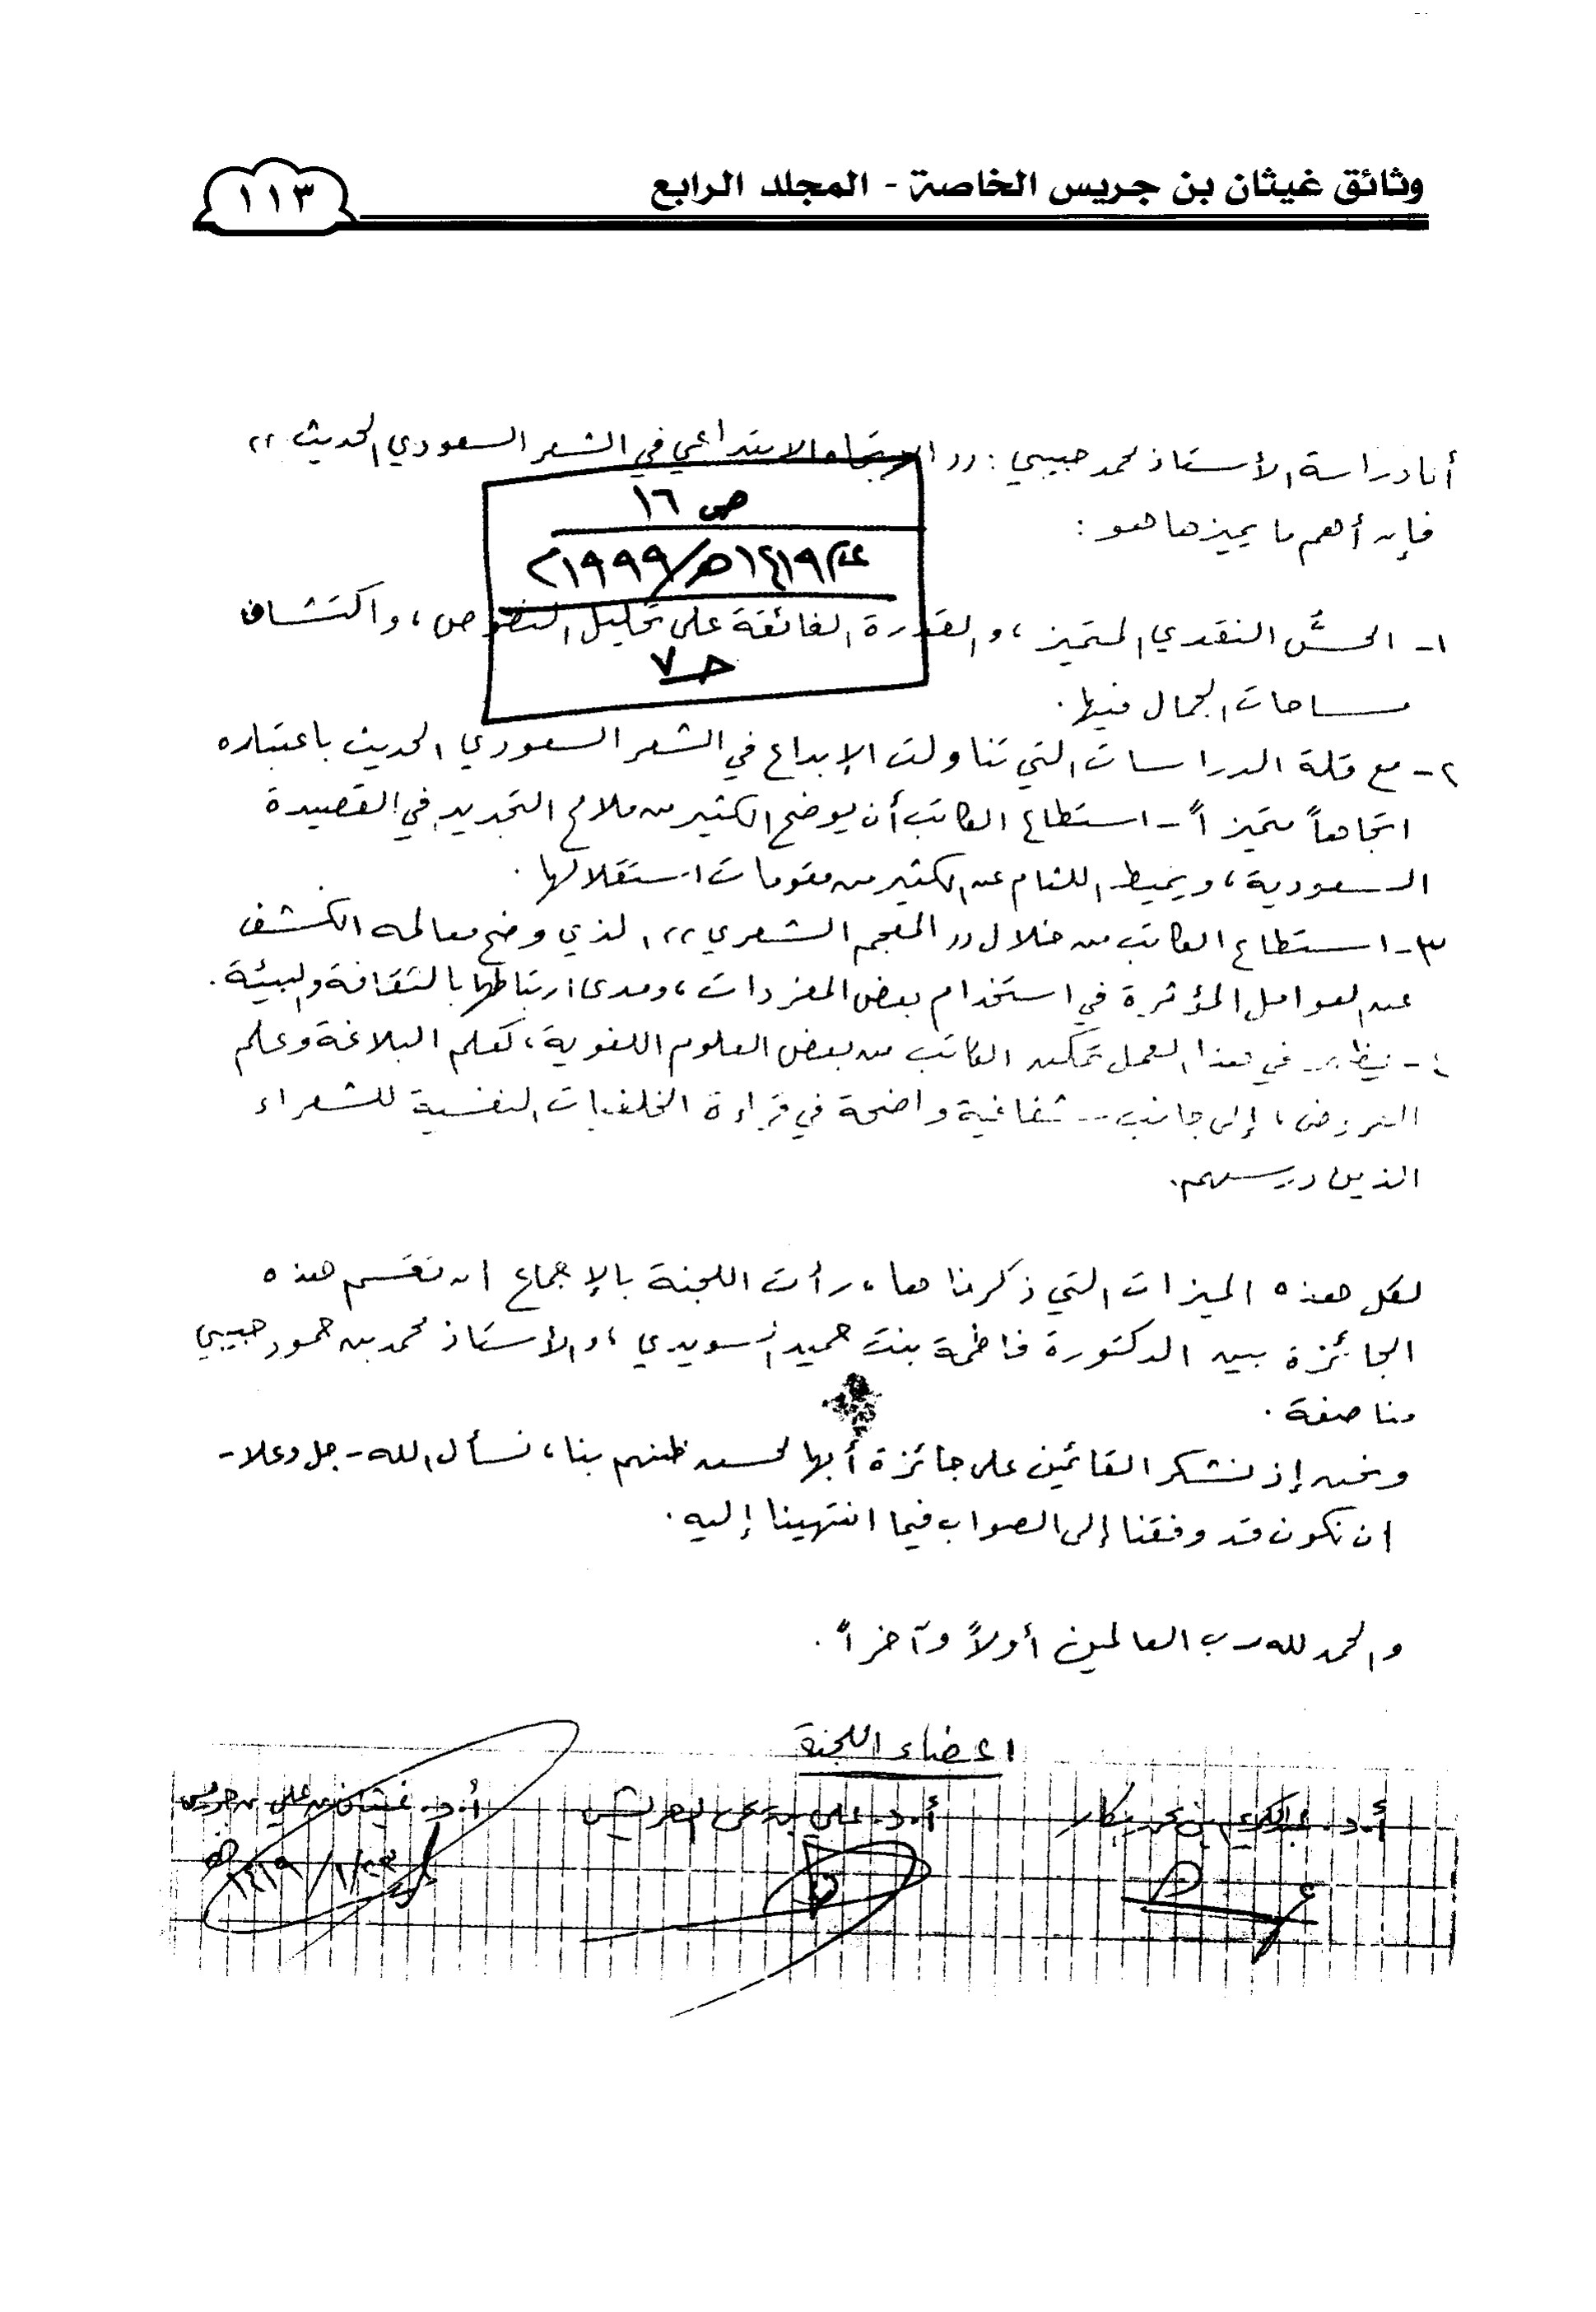 وثائق غيثان بن جريس الخاصة - المجلد الرابع
١١٣
أما دراسة الأستاذ محمد حبيبي : (( الاتجاه الابتداعي في الشعر السعودي الحديث ))
فإن أهم ما يميزها هو :
ص ١٦
١٤١٩هـ/١٩٩٩م
حـ٧
١- الحسُّ النقدي المتميز ، والقدرة الفائقة على تحليل النصوص ، واكتشاف
مساحات الجمال فيها .
٢- مع قلة الدراسات التي تناولت الإبداع في الشعر السعودي الحديث باعتباره
اتجاهاً متميزاً - استطاع الكاتب أن يوضح الكثير من ملامح التجديد في القصيدة
السعودية ، ويميط اللثام عن الكثير من مقومات استقلالها .
٣- استطاع الكاتب من خلال (( المعجم الشعري )) الذي وضح معالمه الكشف
عن العوامل المؤثرة في استخدام بعض المفردات ، ومدى ارتباطها بالثقافة والبيئة .
٤- يظهر في هذا العمل تمكن الكاتب من بعض العلوم اللغوية ، كعلم البلاغة وعلم
العروض ، إلى جانب شفافية واضحة في قراءة الخلفيات النفسية للشعراء
الذين درسهم .
لكل هذه الميزات التي ذكرناها ، رأت اللجنة بالإجماع ان تقسم هذه
الجائزة بين الدكتورة فاطمة بنت حميد السويدي ، والأستاذ محمد بن حمود حبيبي
مناصفة .
ونحن إذ نشكر القائمين على جائزة أبها لحسن ظنهم بنا ، نسأل الله - جل وعلا -
ان نكون قد وفقنا إلى الصواب فيما انتهينا إليه .
والحمد لله رب العالمين أولاً وآخراً .
اعضاء اللجنة
أ.د. عبدالكريم بن محمد بكار
أ.د. علي بن العريشي
أ.د. غيثان بن علي بن جريس